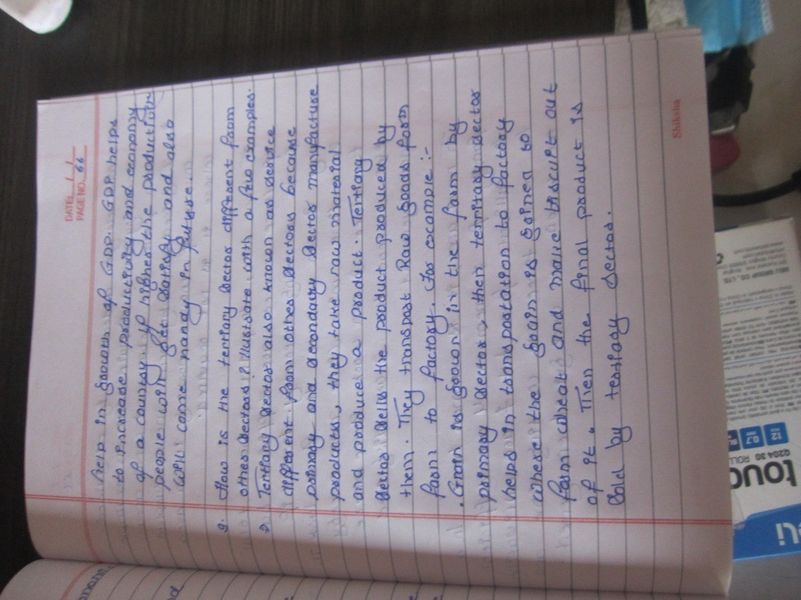 DATE: / /
PAGE NO.: 66
help in growth of GDP. GDP helps
to increase productivity and economy
of a country. If higher the production
people will get salary and also
will come handy in future.
Q. How is the tertiary sector different from
other sectors? Illustrate with a few examples.
Tertiary sector also known as service
different from other sectors because
primary and secondary sector manufacture
products, they take raw material
and produce a product. Tertiary
sector sells the product produced by
them. They transport Raw goods from
farm to factory. for example :-
Grain is grown in the farm by
primary sector, then territary sector
helps in transpotation to factory
where the grain is gained so
farm wheat and make biscuit out
of it. Then the final product is
sold by tertiary sector.
Shiksha
DELI GROUP CO., LTD.
12
0.7
Q204 30
touc
eLi